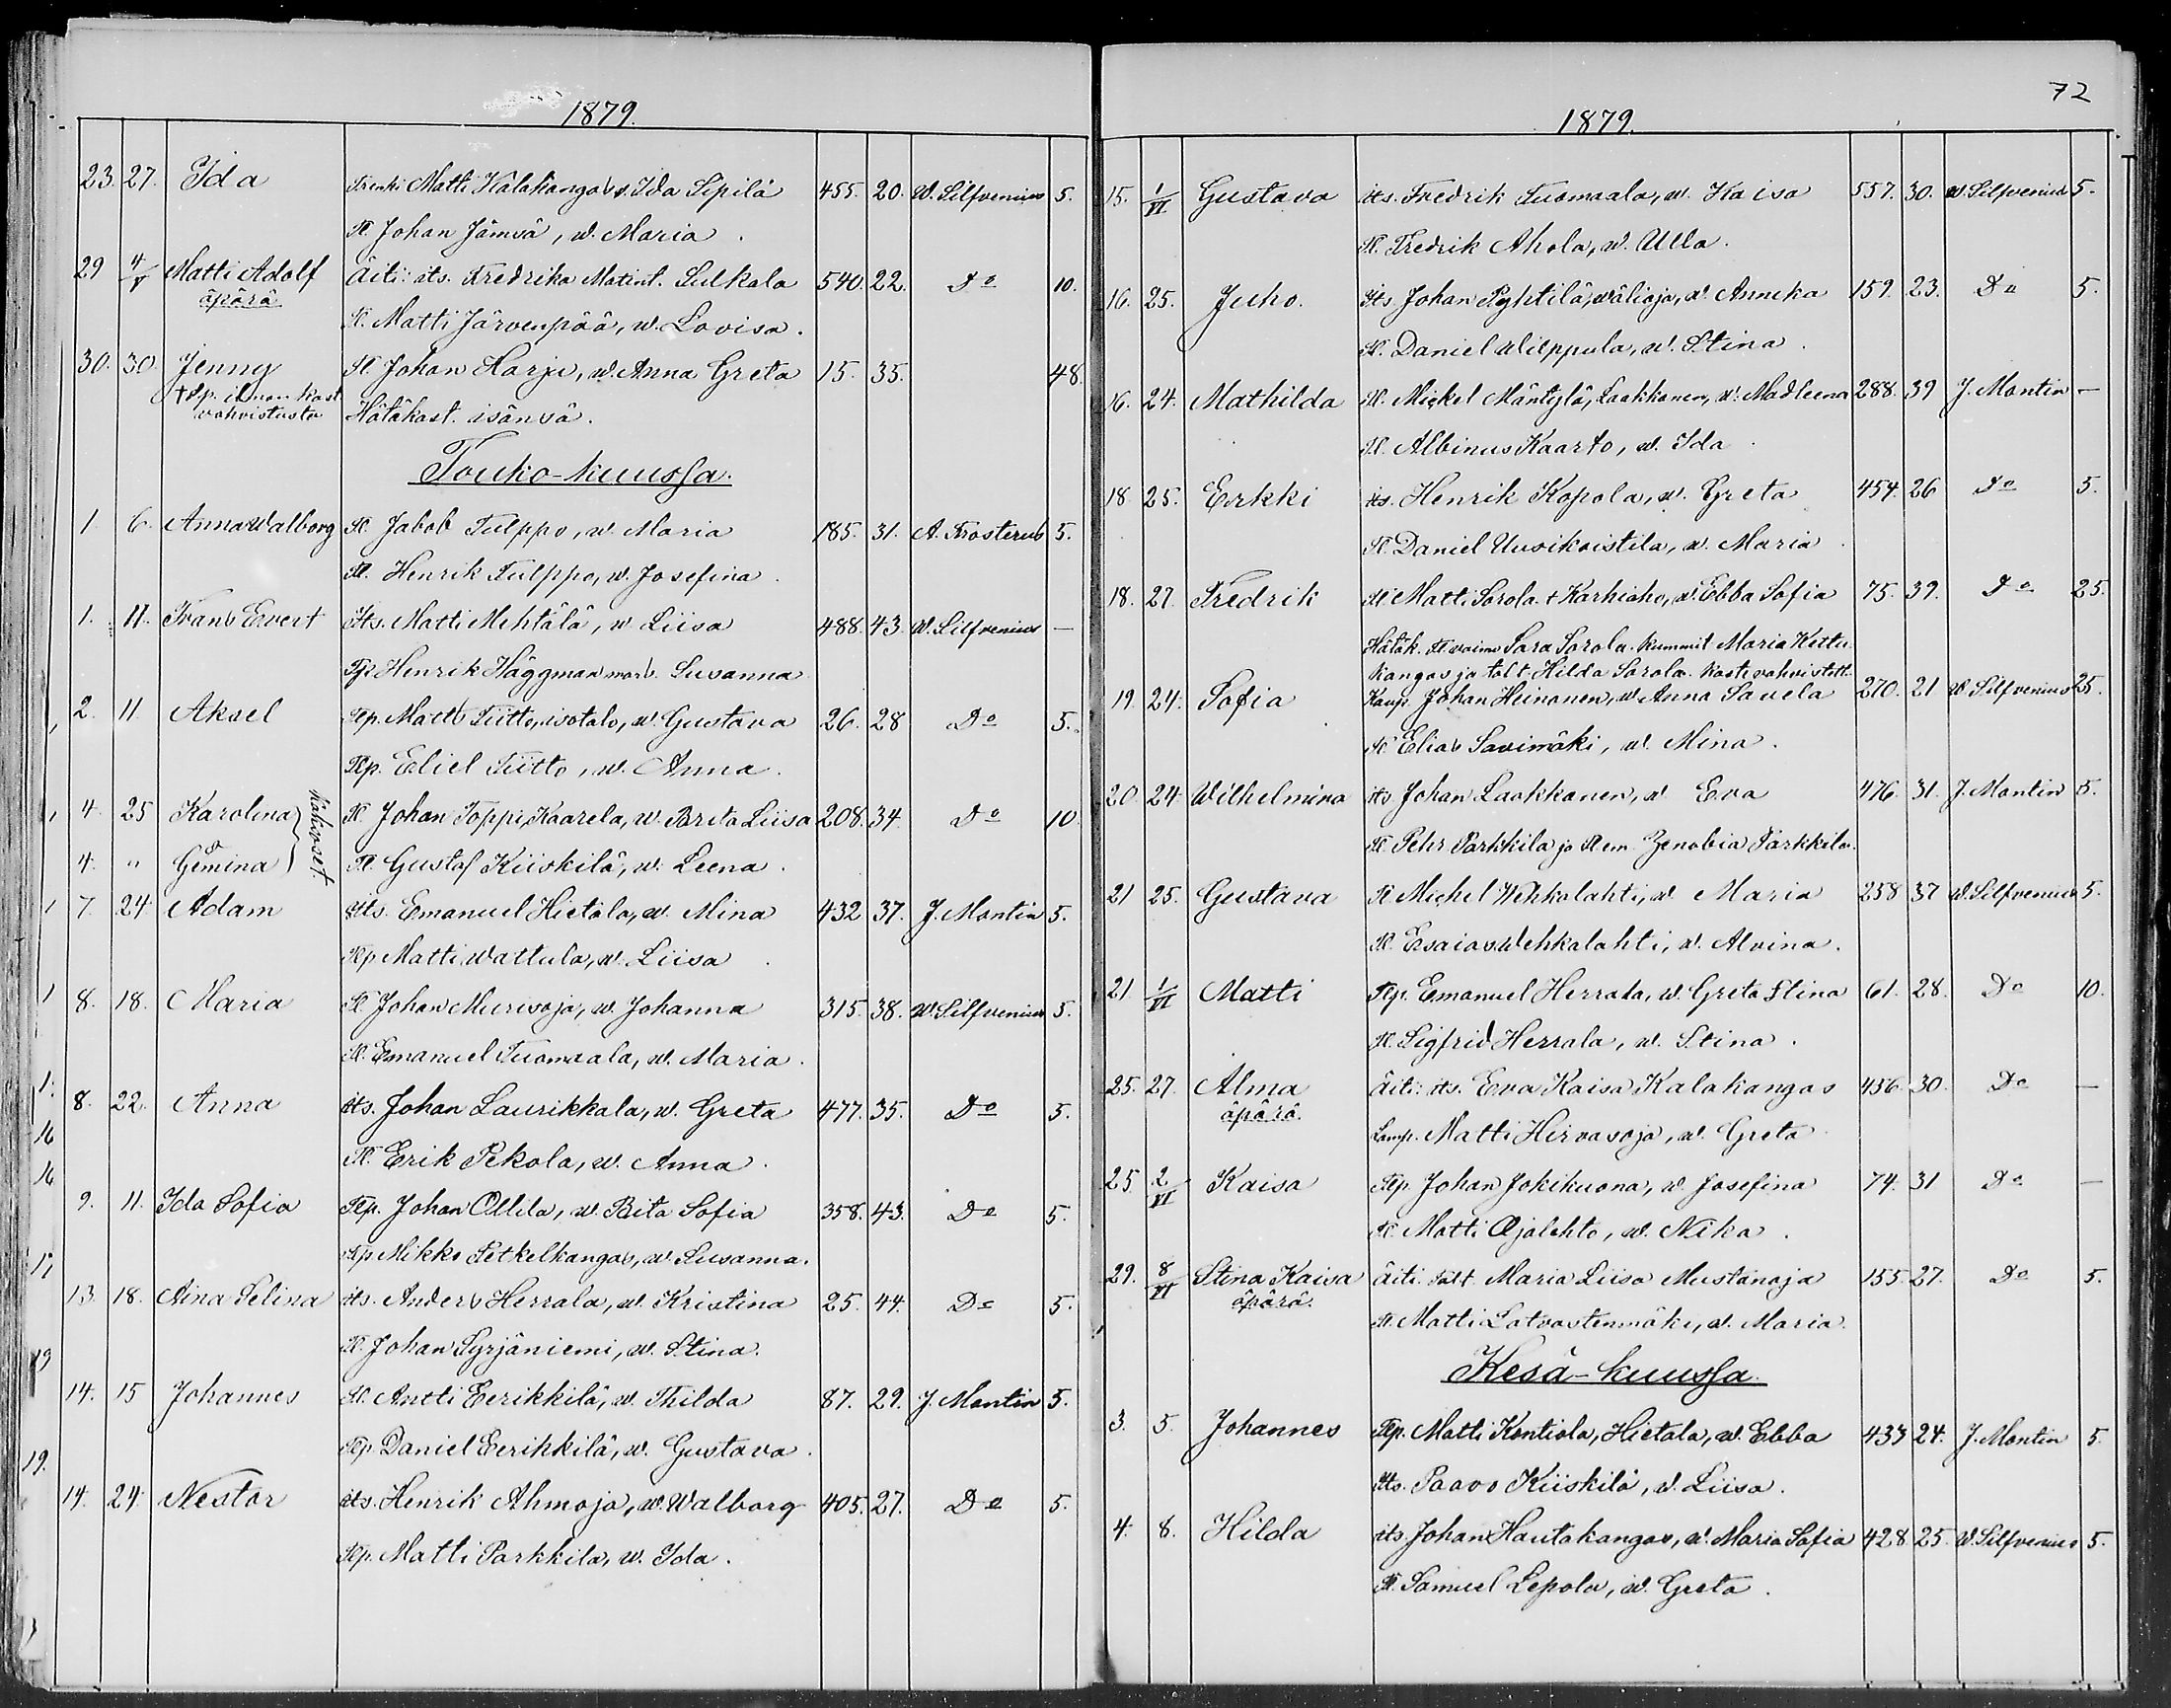 1879.
23. 27. Ida Trenki Matti Kalakangas v. Ida Sipilä 455. 20. W. Silfvenius 5.
Tl. Johan Jämsä, w. Maria.
29 4/V Matti Adolf Äiti: its. Fredrika Matint. Sulkala 540. 22. Do 10.
äpärä Tl. Matti Järvenpää, w. Lovisa.
30. 30. Jenny Tl. Johan Harju, w. Anna Greta 15. 35. 48.
ilman kast. vahvistusta Hätäkast. isänsä.
Touko-kuussa.
1. 6. Anna Walborg Tl. Jakob Tulppo, w. Maria 185. 31. A. Frosterus 5.
Tl. Henrik Tulppo, w. Josefina.
1. 11. Frans Evert Its. Matti Mehtälä, w. Liisa 488. 43. W. Silfvenius —
Tp. Henrik Häggman Susanna
2. 11. Aksel Tlp. Matts Tiitto, isotalo, w. Gustava 26. 28 Do 5.
Tlp. Eliel Tiitto, w. Anna.
4. 25 Karolina Tl. Johan Toppi, Kaarela, w. Brita Liisa 208. 34. Do 10
Kaksoset.
4. " Gemina Tl. Gustaf Kiiskilä, w. Leena.
7. 24 Adam Its. Emanuel Hietala, w. Mina 432 37. J. Montin 5.
Tlp. Matti Wattula, w. Liisa
8. 18. Maria Tl. Johan Murisoja, w. Johanna 315. 38. W. Silfvenius 5.
Tl. Emanuel Tuomaala, w. Maria.
8. 22. Anna Its. Johan Laurikkala, w. Greta 477. 35. Do 5.
Tl. Erik Pekola, w. Anna.
9. 11. Ida Sofia Tlp. Johan Ollila, w. Brita Sofia 358. 43. Do 5.
Tlp. Mikko Petkelkangas, w. Susanna.
13. 18. Aina Selina its. Anders Herrala, w. Kristina 25. 44. Do 5.
Tl. Johan Syrjäniemi, w. Stina.
14. 15 Johannes Tl. Antti Eerikkilä, w. Thilda 87. 29. J. Montin 5.
Tlp. Daniel Eerikkilä, w. Gustava.
14. 24. Nestor its. Henrik Ahmaoja, w. Walborg 405. 27. Do 5.
Tlp. Matti Parkkila, w. Ida.
72
1879.
15. 1/VI Gustava its. Fredrik Tuomaala, w. Kaisa 557. 30. W. Silfvenius 5.
Tl. Fredrik Ahola, w. Ulla.
16. 25. Juho. Its. Johan Pyhtilä, wälioja, w. Annika 159. 23. Do 5.
Tl. Daniel Wilppula, w. Stina.
16. 24. Mathilda Tl. Mickel Mäntylä, Laakkonen, w. Madleena 288. 39 J. Montin —
Tl. Albinus Kaarto, w. Ida
18. 25. Erkki its. Henrik Kopola, w. Greta 454. 26 Do 5.
Tl. Daniel Uusikoistila, w. Maria
18. 27. Fredrik Tl. Matti Sorola t. Karhiaho, w. Ebba Sofia 75. 39. Do 25.
Hätäk. Tl. vaimo Sara Sorola. Kummit Maria Kettu-
kangas ja talt. Hilda Sorola. Kaste vahvistett.
19. 24. Sofia Kaup. Johan Heinonen, w. Anna Sauela 270. 21 W. Silfvenius 25.
Tl. Elias Savimäki, w. Mina.
20. 24. Wilhelmina its. Johan Laakkonen, w. Eva 476. 31. J. Montin 5.
Tl. Pehr Parkkila ja Zenobia Parkkila.
21 25. Gustava Tl. Michel Wehkalahti, w. Maria 258 37 W. Silfvenius 5.
Tl. Esaias Wehkalahti, w. Alvina.
21 1/VI Matti Tlp. Emanuel Herrala, w. Greta Stina 61. 28. Do 10.
Tl. Sigfrid Herrala, w. Stina.
25. 27. Alma Äiti: its. Eva Kaisa Kalakangas 456. 30. Do —
äpärä. Lamp. Matti Hirvasoja, w. Greta
25 2/VI Kaisa Tlp. Johan Jokikuona, w. Josefina 74. 31 Do —
Tl. Matti Ojalehto, w. Nika.
29. 8/VI Stina Kaisa Äiti. talt. Maria Liisa Mustanoja 155. 27. Do 5.
äpärä. Tl. Matti Latvastenmäki, w. Maria.
Kesä-kuussa.
3. 5. Johannes Tlp. Matti Kontiola, Hietala, w. Ebba 433 24. J. Montin 5.
Its. Paavo Kiiskilä, w. Liisa.
4. 8. Hilda its. Johan Hautakangas, w. Maria Sofia 428. 25. W. Silfvenius 5.
Tl. Samuel Lepola, w. Greta.